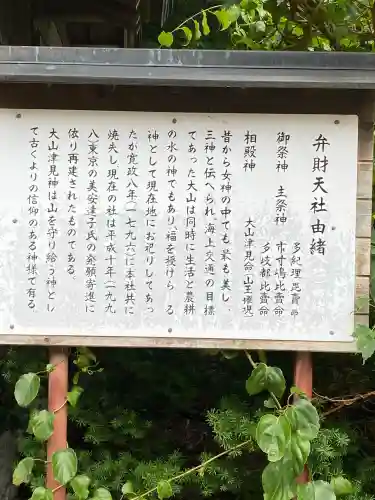 弁財天社由緒
御祭神　主祭神　多紀理毘賣命
市寸嶋比賣命
多岐都比賣命
相殿神　大山津見命(山王権現)
昔から女神の中でも最も美しい
三神と伝へられ、海上交通の目標
であった大山は同時に生活と農耕
の水の神でもあり、福を授けら る
神として現在地にお祀りしてあっ
たが寛政八年(一七九六)に本社共に
焼失し現在の社は平成十年(一九九
八)東京の美安達子氏の発願寄進に
依り再建されたものである。
大山津見神は山を守り給う神とし
て古くよりの信仰のある神様で有る